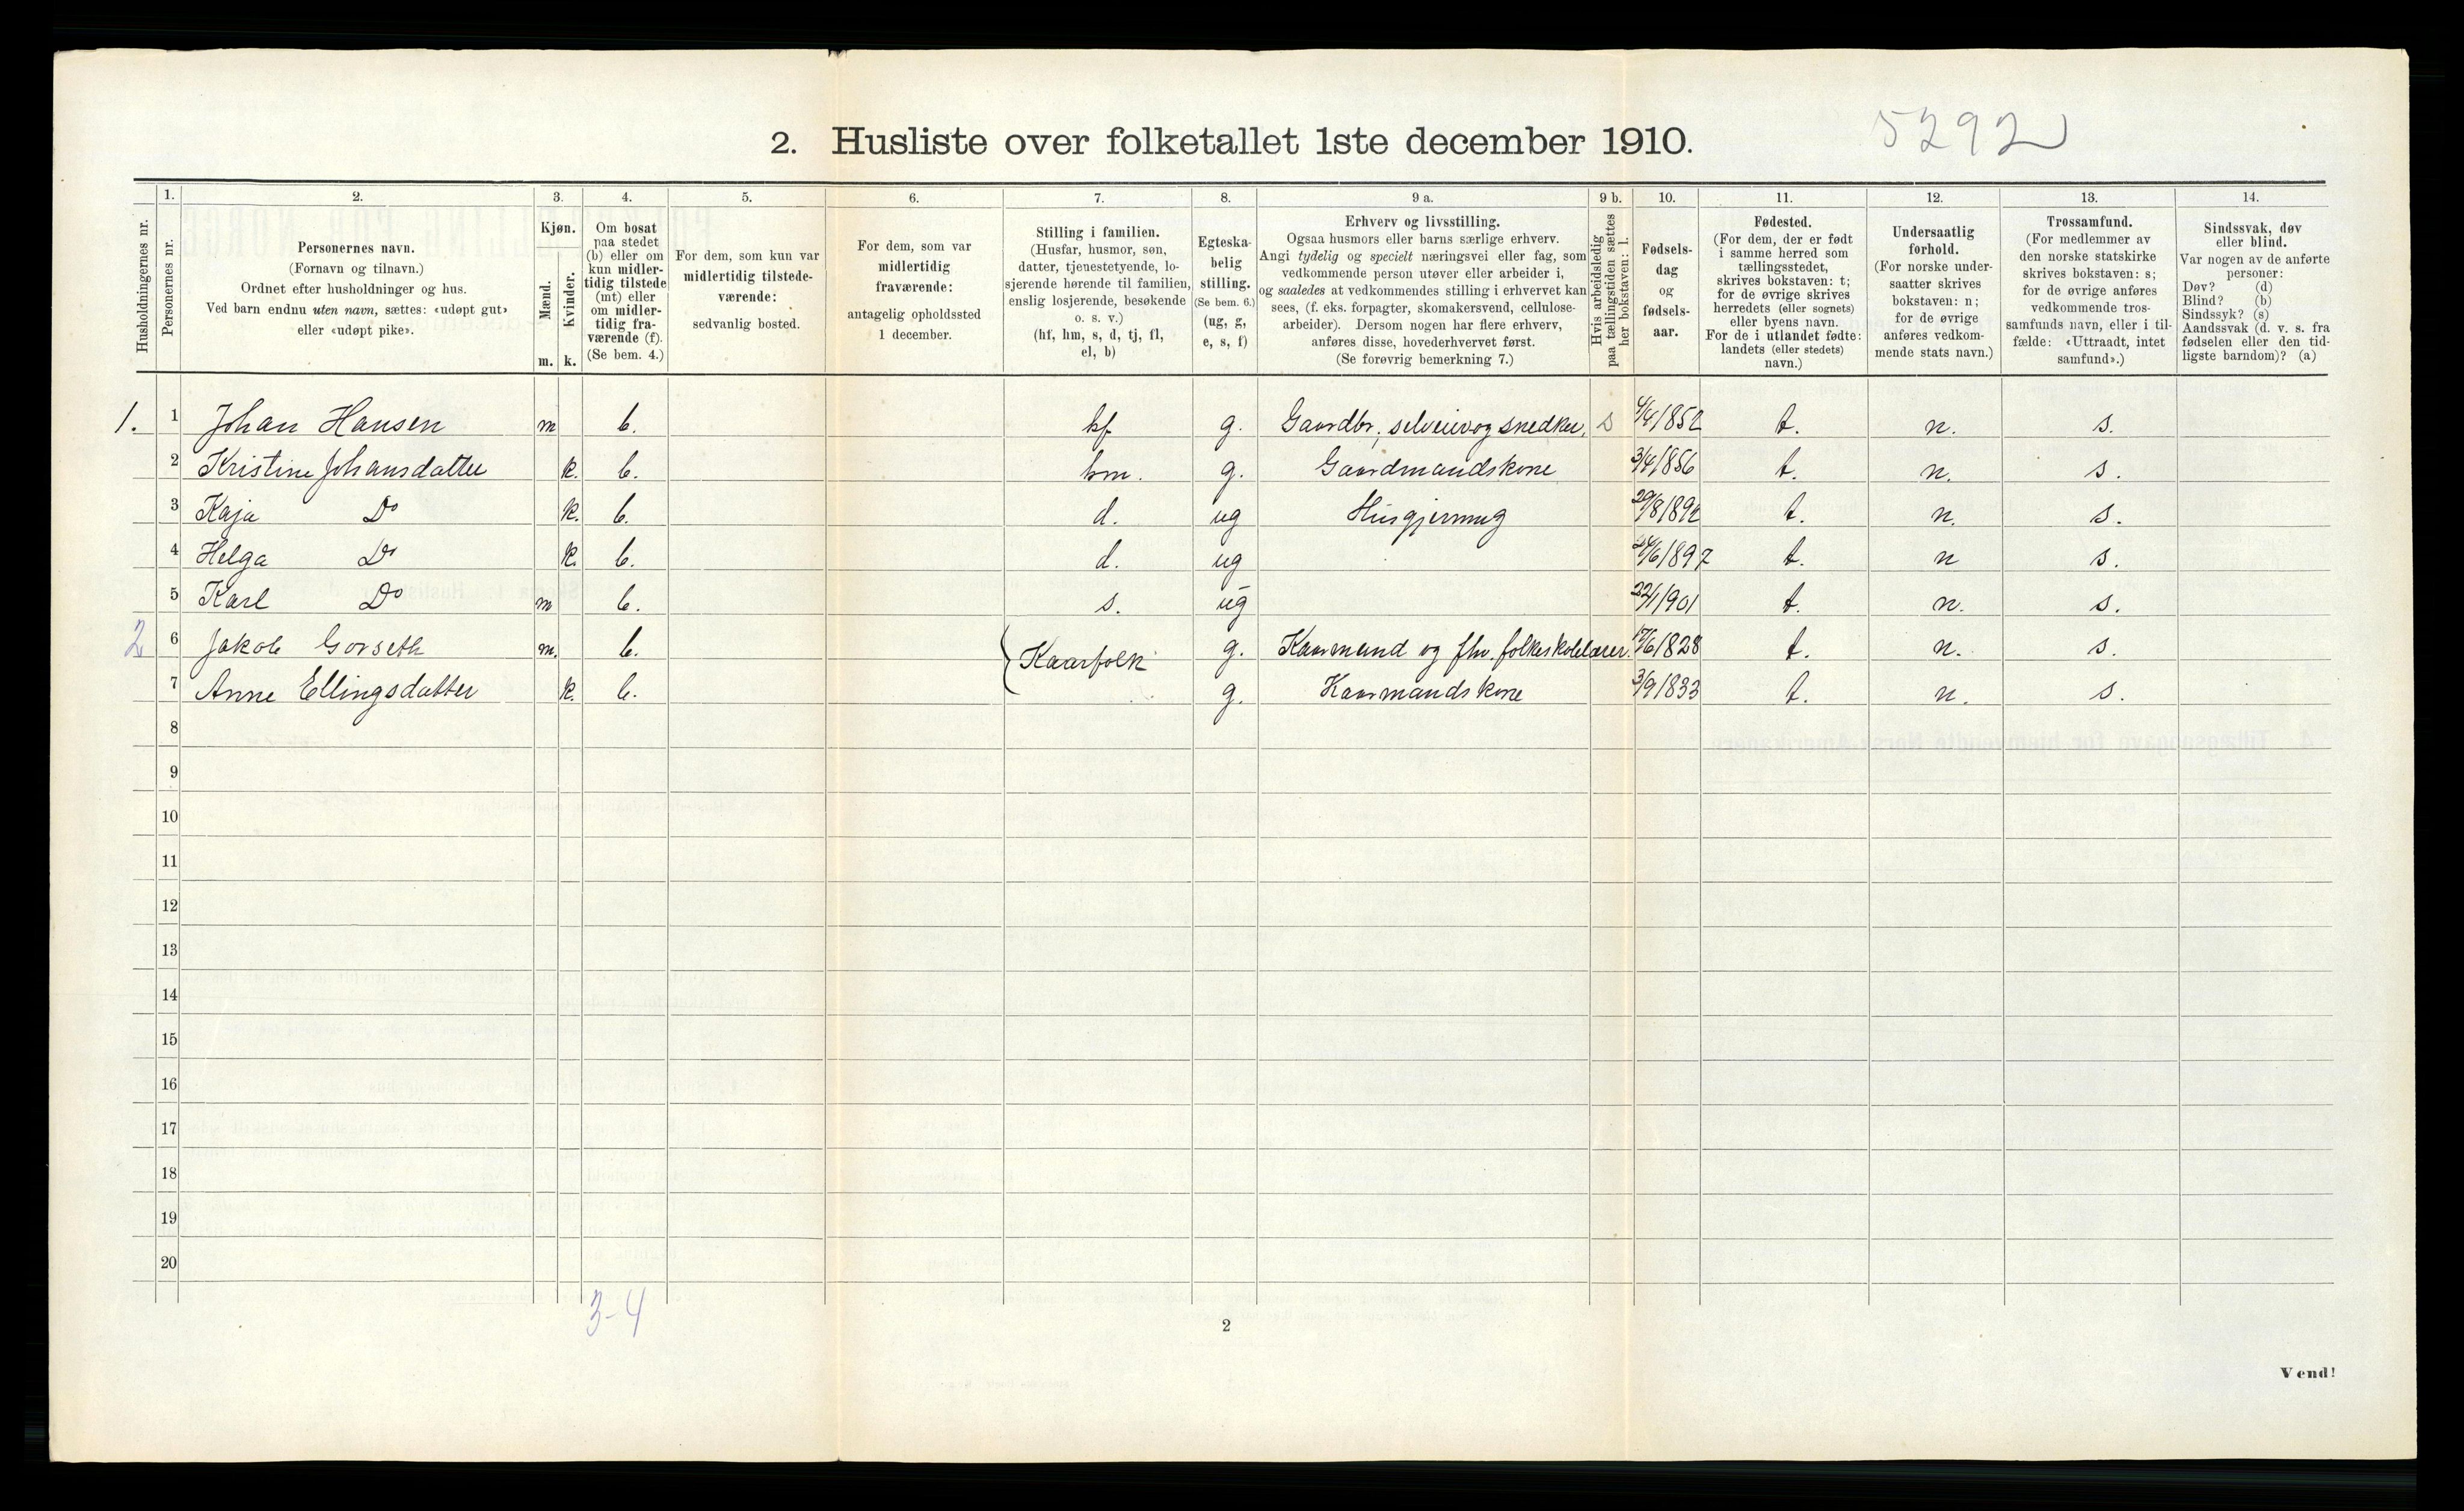 5292
2. Husliste over folketallet 1ste december 1910.
Husholdningernes nr.
1. Personernes nr.
2. Personernes navn.
(Fornavn og tilnavn.)
Ordnet efter husholdninger og hus.
Ved barn endnu uten navn, sættes: «udøpt gut»
eller «udøpt pike».
3. Kjøn.
Mænd. m.
Kvinder. k.
4. Om bosat
paa stedet
(b) eller om
kun midler-
tidig tilstede
(mt) eller
om midler-
tidig fra-
værende (f).
(Se bem. 4.)
5. For dem, som kun var
midlertidig tilstede-
værende:
sedvanlig bosted.
6. For dem, som var
midlertidig
fraværende:
antagelig opholdssted
1 december.
7. Stilling i familien.
(Husfar, husmor, søn,
datter, tjenestetyende, lo-
sjerende hørende til familien,
enslig losjerende, besøkende
o. s. v.)
(hf, hm, s, d, tj, fl,
el, b)
8. Egteska-
belig
stilling.
(Se bem. 6.)
(ug, g,
e, s, f)
9 a. Erhverv og livsstilling.
Ogsaa husmors eller barns særlige erhverv.
Angi tydelig og specielt næringsvei eller fag, som
vedkommende person utøver eller arbeider i,
og saaledes at vedkommendes stilling i erhvervet kan
sees, (f. eks. forpagter, skomakersvend, cellulose-
arbeider). Dersom nogen har flere erhverv,
anføres disse, hovederhvervet først.
(Se forøvrig bemerkning 7.)
9 b. Hvis arbeidsledig
paa tællingstiden sættes
her bokstaven: l.
10. Fødsels-
dag
og
fødsels-
aar.
11. Fødested.
(For dem, der er født
i samme herred som
tællingsstedet,
skrives bokstaven: t;
for de øvrige skrives
herredets (eller sognets)
eller byens navn.
For de i utlandet fødte:
landets (eller stedets)
navn.)
12. Undersaatlig
forhold.
(For norske under-
saatter skrives
bokstaven: n;
for de øvrige
anføres vedkom-
mende stats navn.)
13. Trossamfund.
(For medlemmer av
den norske statskirke
skrives bokstaven: s;
for de øvrige anføres
vedkommende tros-
samfunds navn, eller i til-
fælde: «Uttraadt, intet
samfund».)
14. Sindssvak, døv
eller blind.
Var nogen av de anførte
personer:
Døv? (d)
Blind? (b)
Sindssyk? (s)
Aandssvak (d. v. s. fra
fødselen eller den tid-
ligste barndom)? (a)
1. 1 Johan Hansen m b. hf g. Gaardbr., selveier og snedker. s 4/4 1852 t. n. s.
2 Kristine Johansdatter k. b. hm. g. Gaardmandskone 3/4 1856 t. n. s.
3 Kaja Do k. b. d. ug Husgjerning 29/8 1892 t. n. s.
4 Helga Do k. b. d. ug 24/6 1897 t. n s.
5 Karl Do m b. s. ug 22/1 1901 t. n. s.
2 6 Jakob Gorseth m. b. Kaarfolk g. Kaarmand og fhv. folkeskolelærer. 17/6 1828 t. n. s.
7 Anne Ellingsdatter k. b. g. Kaarmandskone 3/9 1833 t. n. s.
8
9
10
11
12
13
14
15
16
17
18
19
20
3-4
2
Vend!